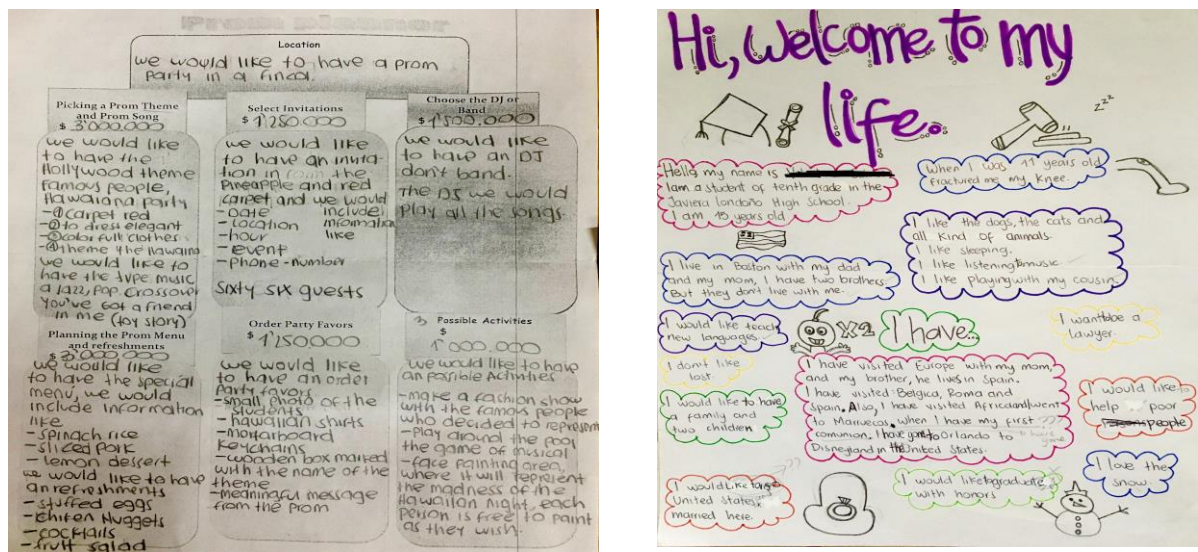 Prom Planner
Location
we would like to have a prom
party in a finca.
Picking a Prom Theme
and Prom Song
$ 3'000.000
we would like
to have the
Hollywood theme
famous people,
Hawaiana party
-①carpet red
-②to dress elegant
-③color full clothes
-④theme the hawaiana
we would like to
have the type music
a Jazz, Pop, Crossover
You've got a friend
in me (toy story)
Select Invitations
$ 1'250.000
we would like
to have an invita-
tion in the
Pineapple and red
carpet and we would
include information like
-Date
-location
-hour
-event
-phone-number
sixty six guests
Choose the DJ or
Band
$ 1'500.000
we would like
to have an DJ
don't band.
The DJ we would
play all the songs.
Planning the Prom Menu
and refreshments
$ 3'000.000
we would like
to have the special
menu, we would
include information
like
-spinach rice
-sliced pork
-lemon dessert
we would like to have
an refreshments
-stuffed eggs
-chiken Nuggets
-cocktails
-fruit salad
Order Party Favors
$ 1'150.000
we would like
to have an order
Party favors
-small photo of the
students
-hawaiian shirts
-mortarboard
Keychains
-wooden box marked
with the name of the
theme
-meaningful message
from the prom
3 Possible Activities
$
1'000.000
we would like to have
an possible Activities
-make a fashion show
with the famous people
who decided to represent
-play around the pool
the game of musical
-face painting area,
where it will represent
the madness of the
Hawaiian night, each
person is free to paint
as they wish.
Hi, Welcome to my
life.
zzz
Hello, my name is
I am a student of tenth grade in the
Javiera Londoño High School.
I am 15 years old
When I was 11 years old
fractured me my knee.
I like the dogs, the cats and
all kind of animals.
I like sleeping.
I like listening to music.
I like playing with my cousin.
I live in Boston with my dad
and my mom, I have two brothers.
But they don't live with me.
I would like teach
new languages.
X2
I have...
I want be a
lawyer.
I don't like
lost.
I have visited Europe with my mom,
and my brother, he lives in Spain.
I have visited: Belgica, Roma and
Spain. Also, I have visited Africa and went
to Marruecos. when I have my first
comunion. I have gone to Orlando to
Disneyland in the United States.
I would like to have
a family and
two children
I would like to
help poor
people
I love the
snow.
I would like to go
United States
married here.
I would like to graduate
with honors